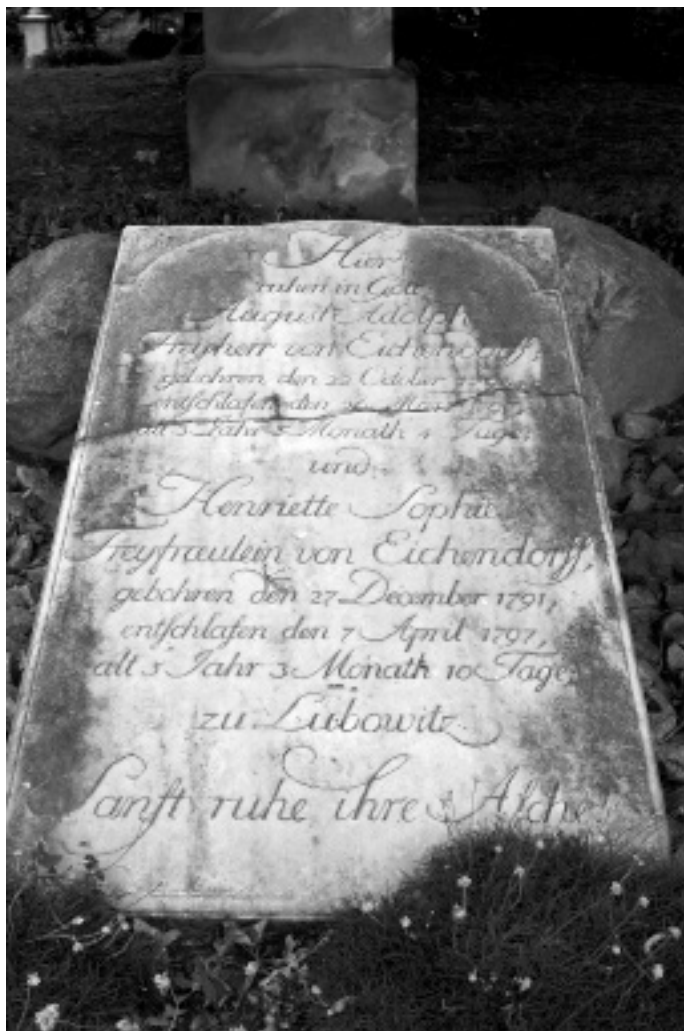 Hier
ruhen in Gott
August Adolph
Freyherr von Eichendorff,
gebohren den 22 October
entschlafen den März
alt 3 Jahr 5 Monath 4 Tage,
und
Henriette Sophie
Freyfraeulein von Eichendorff,
gebohren den 27 December 1791,
entschlafen den 7 April 1797,
alt 5 Jahr 3 Monath 10 Tage,
zu Lubowitz.
Sanft ruhe ihre Asche!